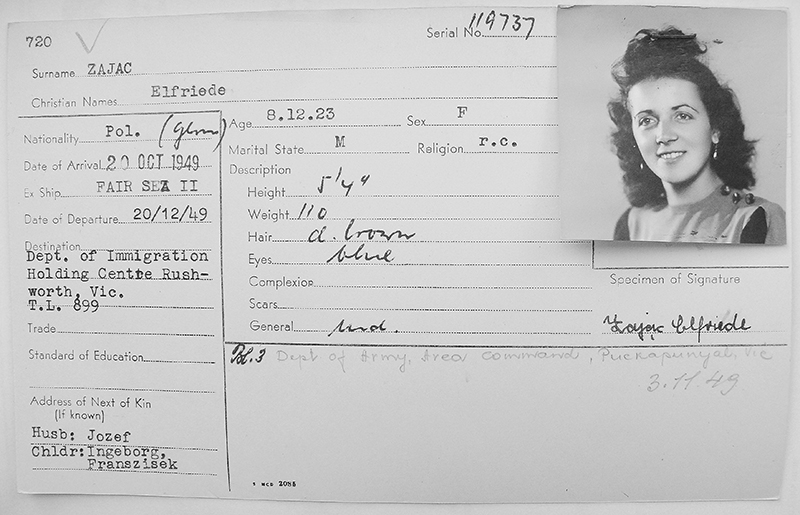 720
Serial No. 119737
Surname ZAJAC
Christian Names Elfriede
Nationality Pol. (Germ)
Date of Arrival 20 OCT 1949
Ex Ship FAIR SEA II
Date of Departure 20/12/49
Destination
Dept. of Immigration
Holding Centre Rush-
worth, Vic.
T.L. 899
Trade
Standard of Education
Address of Next of Kin
(If known)
Husb: Jozef
Chldr: Ingeborg,
Franszisek
Age 8.12.23 Sex F
Marital State M Religion r.c.
Description
Height 5'4"
Weight 110
Hair d. brown
Eyes blue
Complexion
Scars
General
Specimen of Signature
Zając Elfriede
Bl. 3 Dept of Army, Area Command, Puckapunyal, Vic
3.11.49